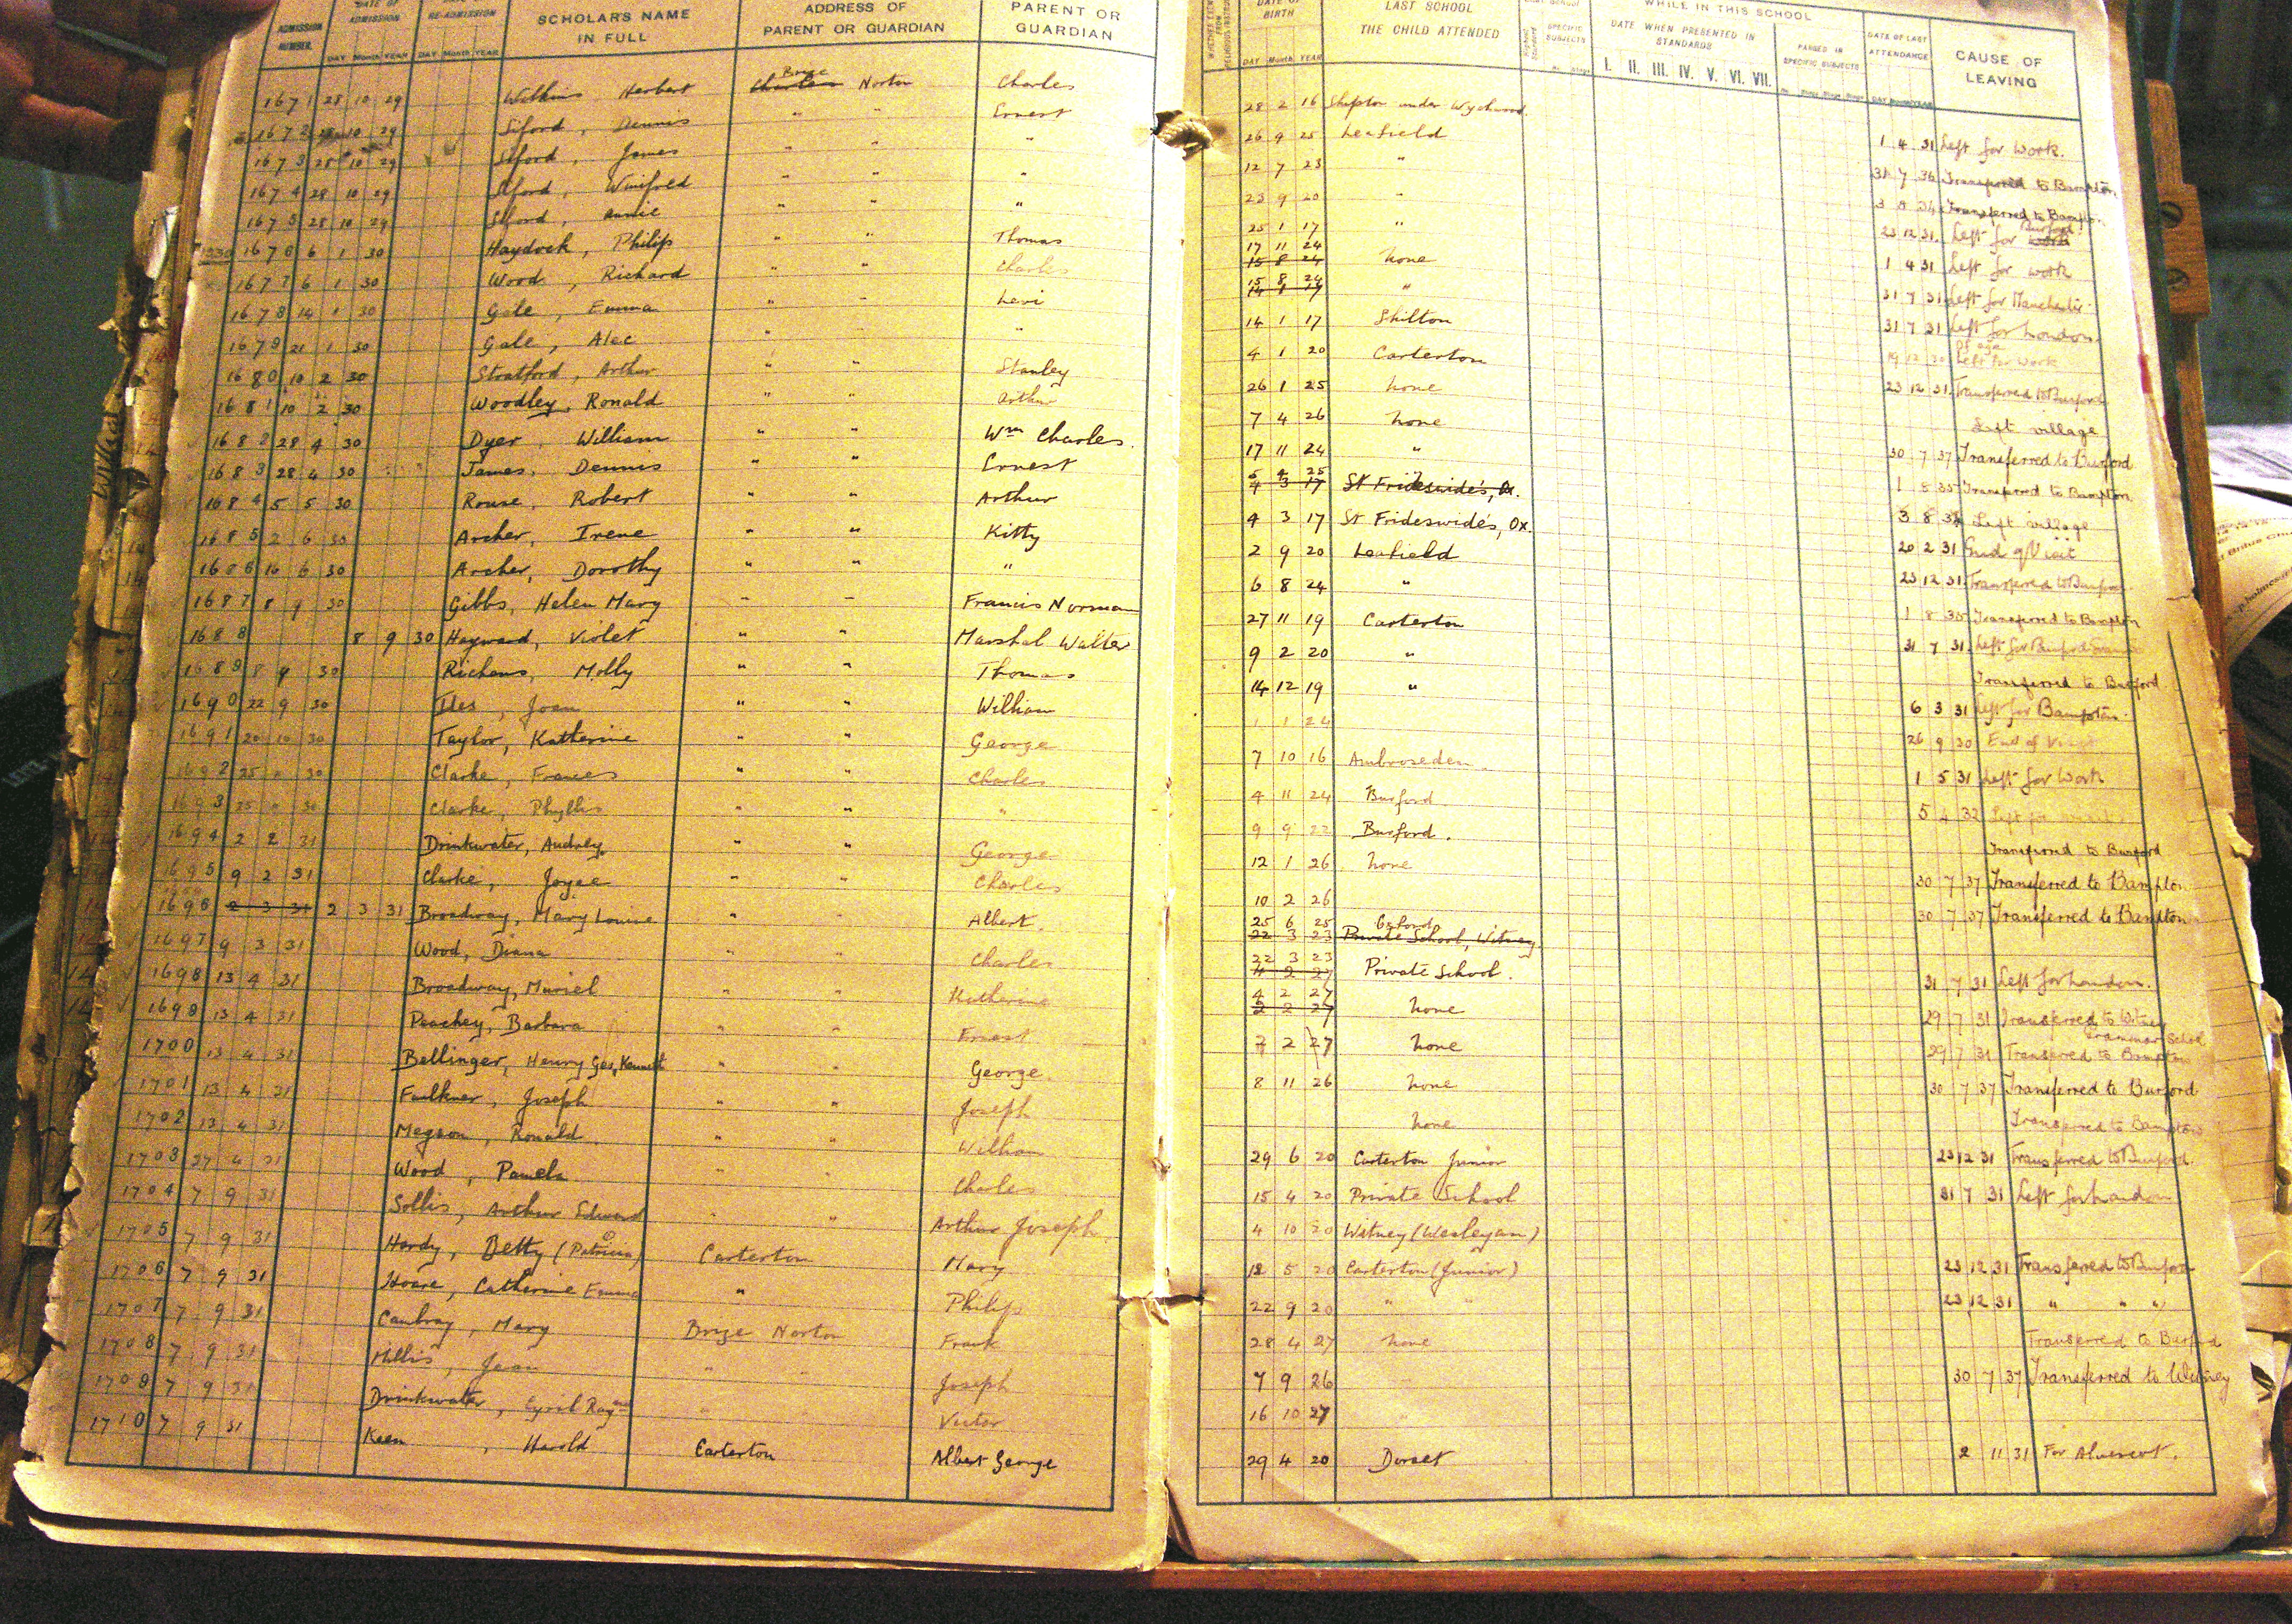 ADMISSION NUMBER. DATE OF ADMISSION RE-ADMISSION SCHOLAR'S NAME IN FULL ADDRESS OF PARENT OR GUARDIAN PARENT OR GUARDIAN
DAY Month YEAR DAY Month YEAR
1671 28 10 29 Wilkins Herbert Charles Brize Norton Charles
1672 28 10 29 Siford, Dennis " " Ernest
1673 28 10 29 Siford, James " " "
1674 28 10 29 Siford, Winifred " " "
1675 28 10 29 Siford, Annie " " "
1930 1676 6 1 30 Haydock, Philip " " Thomas
1677 6 1 30 Wood, Richard " " Charles
1678 14 1 30 Gale, Emma " " Levi
1679 21 1 30 Gale, Alec " " "
1680 10 2 30 Stratford, Arthur " " Stanley
1681 10 2 30 Woodley, Ronald " " Arthur
1682 28 4 30 Dyer, William " " Wm Charles.
1683 28 4 30 James, Dennis " " Ernest
1684 5 5 30 Rouse, Robert " " Arthur
1685 2 6 30 Archer, Irene " " Kitty
1686 16 6 30 Archer, Dorothy " " "
1687 8 9 30 Gibbs, Helen Mary " " Francis Norman
1688 8 9 30 Hayward, Violet " " Marshal Walter
1689 8 9 30 Richens, Molly " " Thomas
1690 22 9 30 Iles, Joan " " William
1691 20 10 30 Taylor, Katherine " " George
1692 25 " 30 Clarke, Frances " " Charles
1693 25 " 30 Clarke, Phyllis " " "
1694 2 2 31 Drinkwater, Audrey " " George
1695 9 2 31 Clarke, Joyce " " Charles
1696 2 3 31 2 3 31 Broadway, Mary Louise " " Albert.
1697 9 3 31 Wood, Diana " " Charles
1698 13 4 31 Broadway, Muriel " " Katherine
1699 13 4 31 Peachey, Barbara " " Ernest
1700 13 4 31 Bellinger, Henry Geo. Kenneth " " George
1701 13 4 31 Faulkner, Joseph " " Joseph
1702 13 4 31 Megson, Ronald " " William
1703 27 4 31 Wood, Pamela " " Charles
1704 7 9 31 Sollis, Arthur Edward " " Arthur Joseph
1705 7 9 31 Hardy, Betty (Patricia) Carterton Mary
1706 7 9 31 Hoare, Catherine Emma " Philip
1707 7 9 31 Caubray, Mary Brize Norton Frank
1708 7 9 31 Millis, Jean " " Joseph
1709 7 9 31 Drinkwater, Cyril Raymd " Victor
1710 7 9 31 Keen, Harold Carterton Albert George
DATE OF BIRTH LAST SCHOOL THE CHILD ATTENDED SPECIFIC SUBJECTS WHILE IN THIS SCHOOL DATE WHEN PRESENTED IN STANDARDS PASSED IN SPECIFIC SUBJECTS DATE OF LAST ATTENDANCE CAUSE OF LEAVING
DAY Month YEAR I. II. III. IV. V. VI. VII. DAY Month YEAR
28 2 16 Shipton under Wychwood.
26 9 25 Leafield 1 4 31 Left for Work.
12 7 23 " 31 7 36 Transferred to Bampton.
23 9 20 " 3 8 34 Transferred to Bampton
25 1 17 " 23 12 31 Left for work Burford
17 11 24 15 8 24 none 1 4 31 Left for work
15 8 24 14 1 17 " 31 7 31 Left for Manchester
14 1 17 Shilton 31 7 31 Left for London.
4 1 20 Carterton 19 12 30 Of age Left for work
26 1 25 none 23 12 31 Transferred to Burford
7 4 26 none Left village
17 11 24 " 30 7 37 Transferred to Burford
5 4 25 4 3 17 St Frideswide's, Ox. 1 8 35 Transferred to Bampton
4 3 17 St Frideswide's, Ox. 3 8 34 Left village
2 9 20 Leafield 20 2 31 End of Visit
6 8 24 " 23 12 31 Transferred to Burford
27 11 19 Carterton 1 8 35 Transferred to Bampton
9 2 20 " 31 7 31 Left for Burford
14 12 19 " Transferred to Burford
1 1 24 6 3 31 Left for Bampton.
26 9 30 End of Visit
7 10 16 Ambroseden. 1 5 31 Left for Work
4 11 24 Burford. 5 4 32 Left for
9 9 22 Burford. Transferred to Burford
12 1 26 none 30 7 37 Transferred to Bampton
10 2 26 30 7 37 Transferred to Bampton
25 6 25 22 3 23 Oxford Private School, Witney.
22 3 23 4 2 27 Private School. 31 7 31 Left for London.
4 2 27 2 2 27 none 29 7 31 Transferred to Witney Grammar School
2 2 27 none 29 7 31 Transferred to Bampton
8 11 26 none 30 7 37 Transferred to Burford
none Transferred to Bampton
29 6 20 Carterton Junior 23 12 31 Transferred to Burford.
15 4 20 Private School 31 7 31 Left for London
4 10 20 Witney (Wesleyan)
12 5 20 Carterton (Junior) 23 12 31 Transferred to Burford
22 9 20 " " 23 12 31 " " "
28 4 27 none Transferred to Burford
7 9 26 30 7 37 Transferred to Witney
16 10 27
29 4 20 Dorset 2 11 31 For Alvescot.